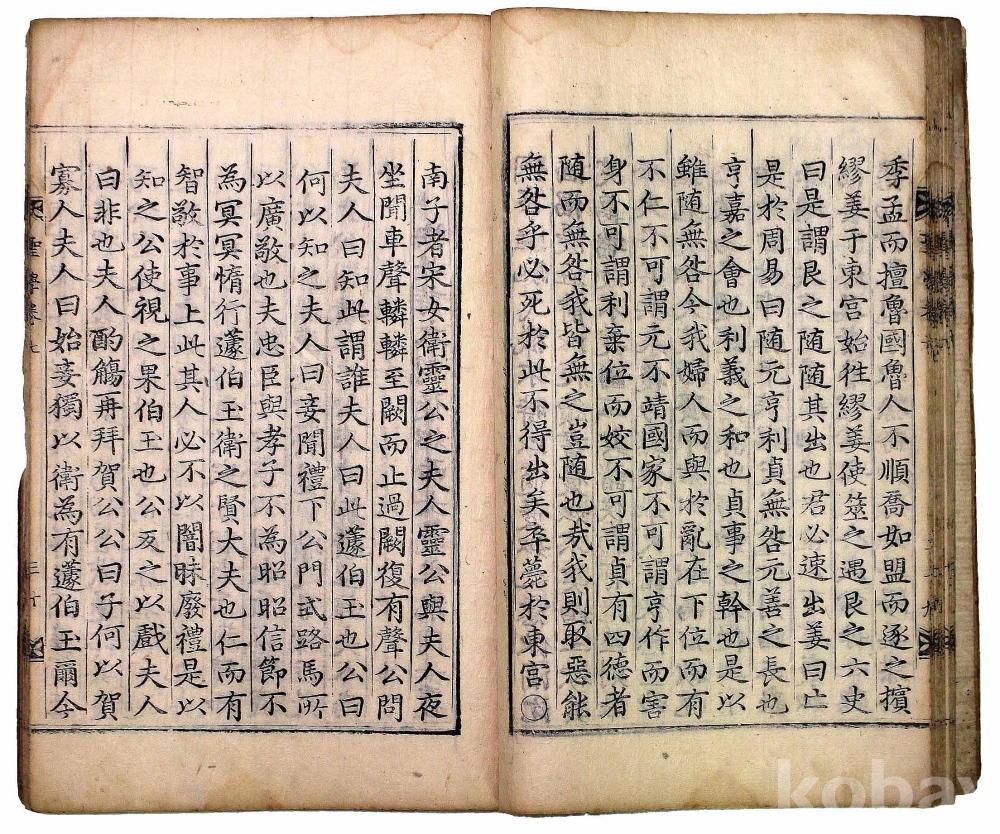 季孟而擅魯國魯人不順喬如盟而逐之擯
繆姜于東宮始徃繆姜使筮之遇艮之六史
曰是謂艮之随随其出也君必速出姜曰亡
是於周易曰随元亨利貞無咎元善之長也
亨嘉之會也利義之和也貞事之幹也是以
雖随無咎今我婦人而與於亂在下位而有
不仁不可謂元不靖國家不可謂亨作而害
身不可謂利棄位而姣不可謂貞有四德者
随而無咎我皆無之豈随也㢤我則取惡能
無咎乎必死於此不得出矣卒薨於東宮
南子者宋女衛靈公之夫人靈公與夫人夜
坐聞車聲轔轔至闕而止過闕復有聲公問
夫人曰知此謂誰夫人曰此蘧伯玉也公曰
何以知之夫人曰妾聞禮下公門式路馬所
以廣敬也夫忠臣與孝子不為昭昭信節不
為冥冥惰行蘧伯玉衛之賢大夫也仁而有
智敬於事上此其人必不以闇昧廢禮是以
知之公使視之果伯玉也公反之以戲夫人
曰非也夫人酌觴再拜賀公公曰子何以賀
寡人夫人曰始妾獨以衛為有蘧伯玉爾今
聖學卷七
kobay